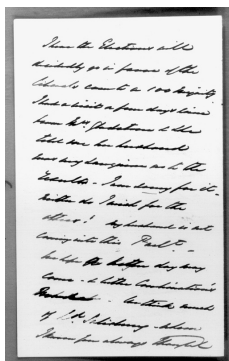 I hear the Elections will
decidedly go in favor of the
Liberals count on a 100 majority
I had a visit a few days since
from Mrs. Gladstone & she
told me her husband
was very sanguine as to the
results - I am sorry for it -
neither do I wish for the
others! my husband is not
coming into this Parlt -
he hopes a better day may
come - & better Combinations
We think much
of Ld. Salisbury - whom
I have always thought